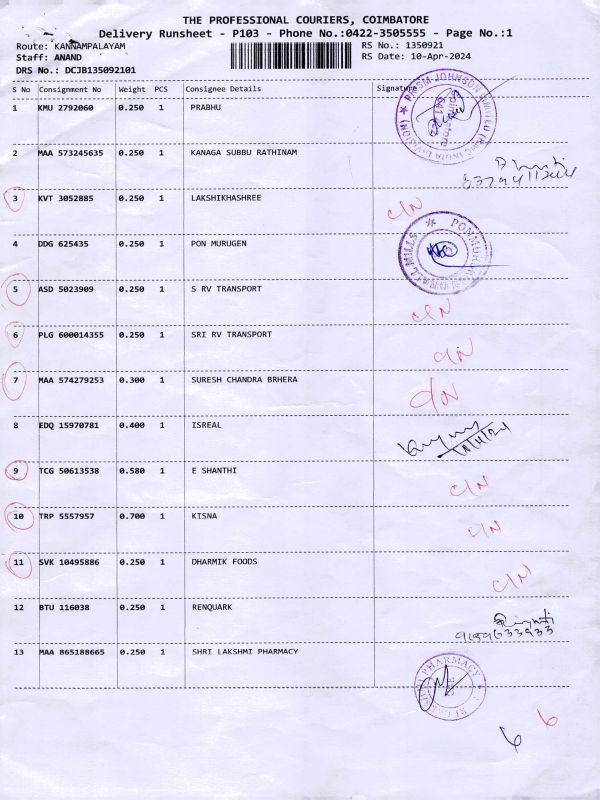 THE PROFESSIONAL COURIERS, COIMBATORE
Delivery Runsheet - P103 - Phone No.:0422-3505555 - Page No.:1
Route: KANNAMPALAYAM RS No.: 1350921
Staff: ANAND RS Date: 10-Apr-2024
DRS No.: DCJB135092101
S No Consignment No Weight PCS Consignee Details Signature
1 KMU 2792060 0.250 1 PRABHU
2 MAA 573245635 0.250 1 KANAGA SUBBU RATHINAM
3 KVT 3052885 0.250 1 LAKSHIKHASHREE C/N
4 DDG 625435 0.250 1 PON MURUGEN
5 ASD 5023909 0.250 1 S RV TRANSPORT C/N
6 PLG 600014355 0.250 1 SRI RV TRANSPORT C/N
7 MAA 574279253 0.300 1 SURESH CHANDRA BRHERA C/N
8 EDQ 15970781 0.400 1 ISREAL
9 TCG 50613538 0.580 1 E SHANTHI C/N
10 TRP 5557957 0.700 1 KISNA C/N
11 SVK 10495886 0.250 1 DHARMIK FOODS C/N
12 BTU 116038 0.250 1 RENQUARK
9159633933
13 MAA 865188665 0.250 1 SHRI LAKSHMI PHARMACY
PHARMACY
6 6